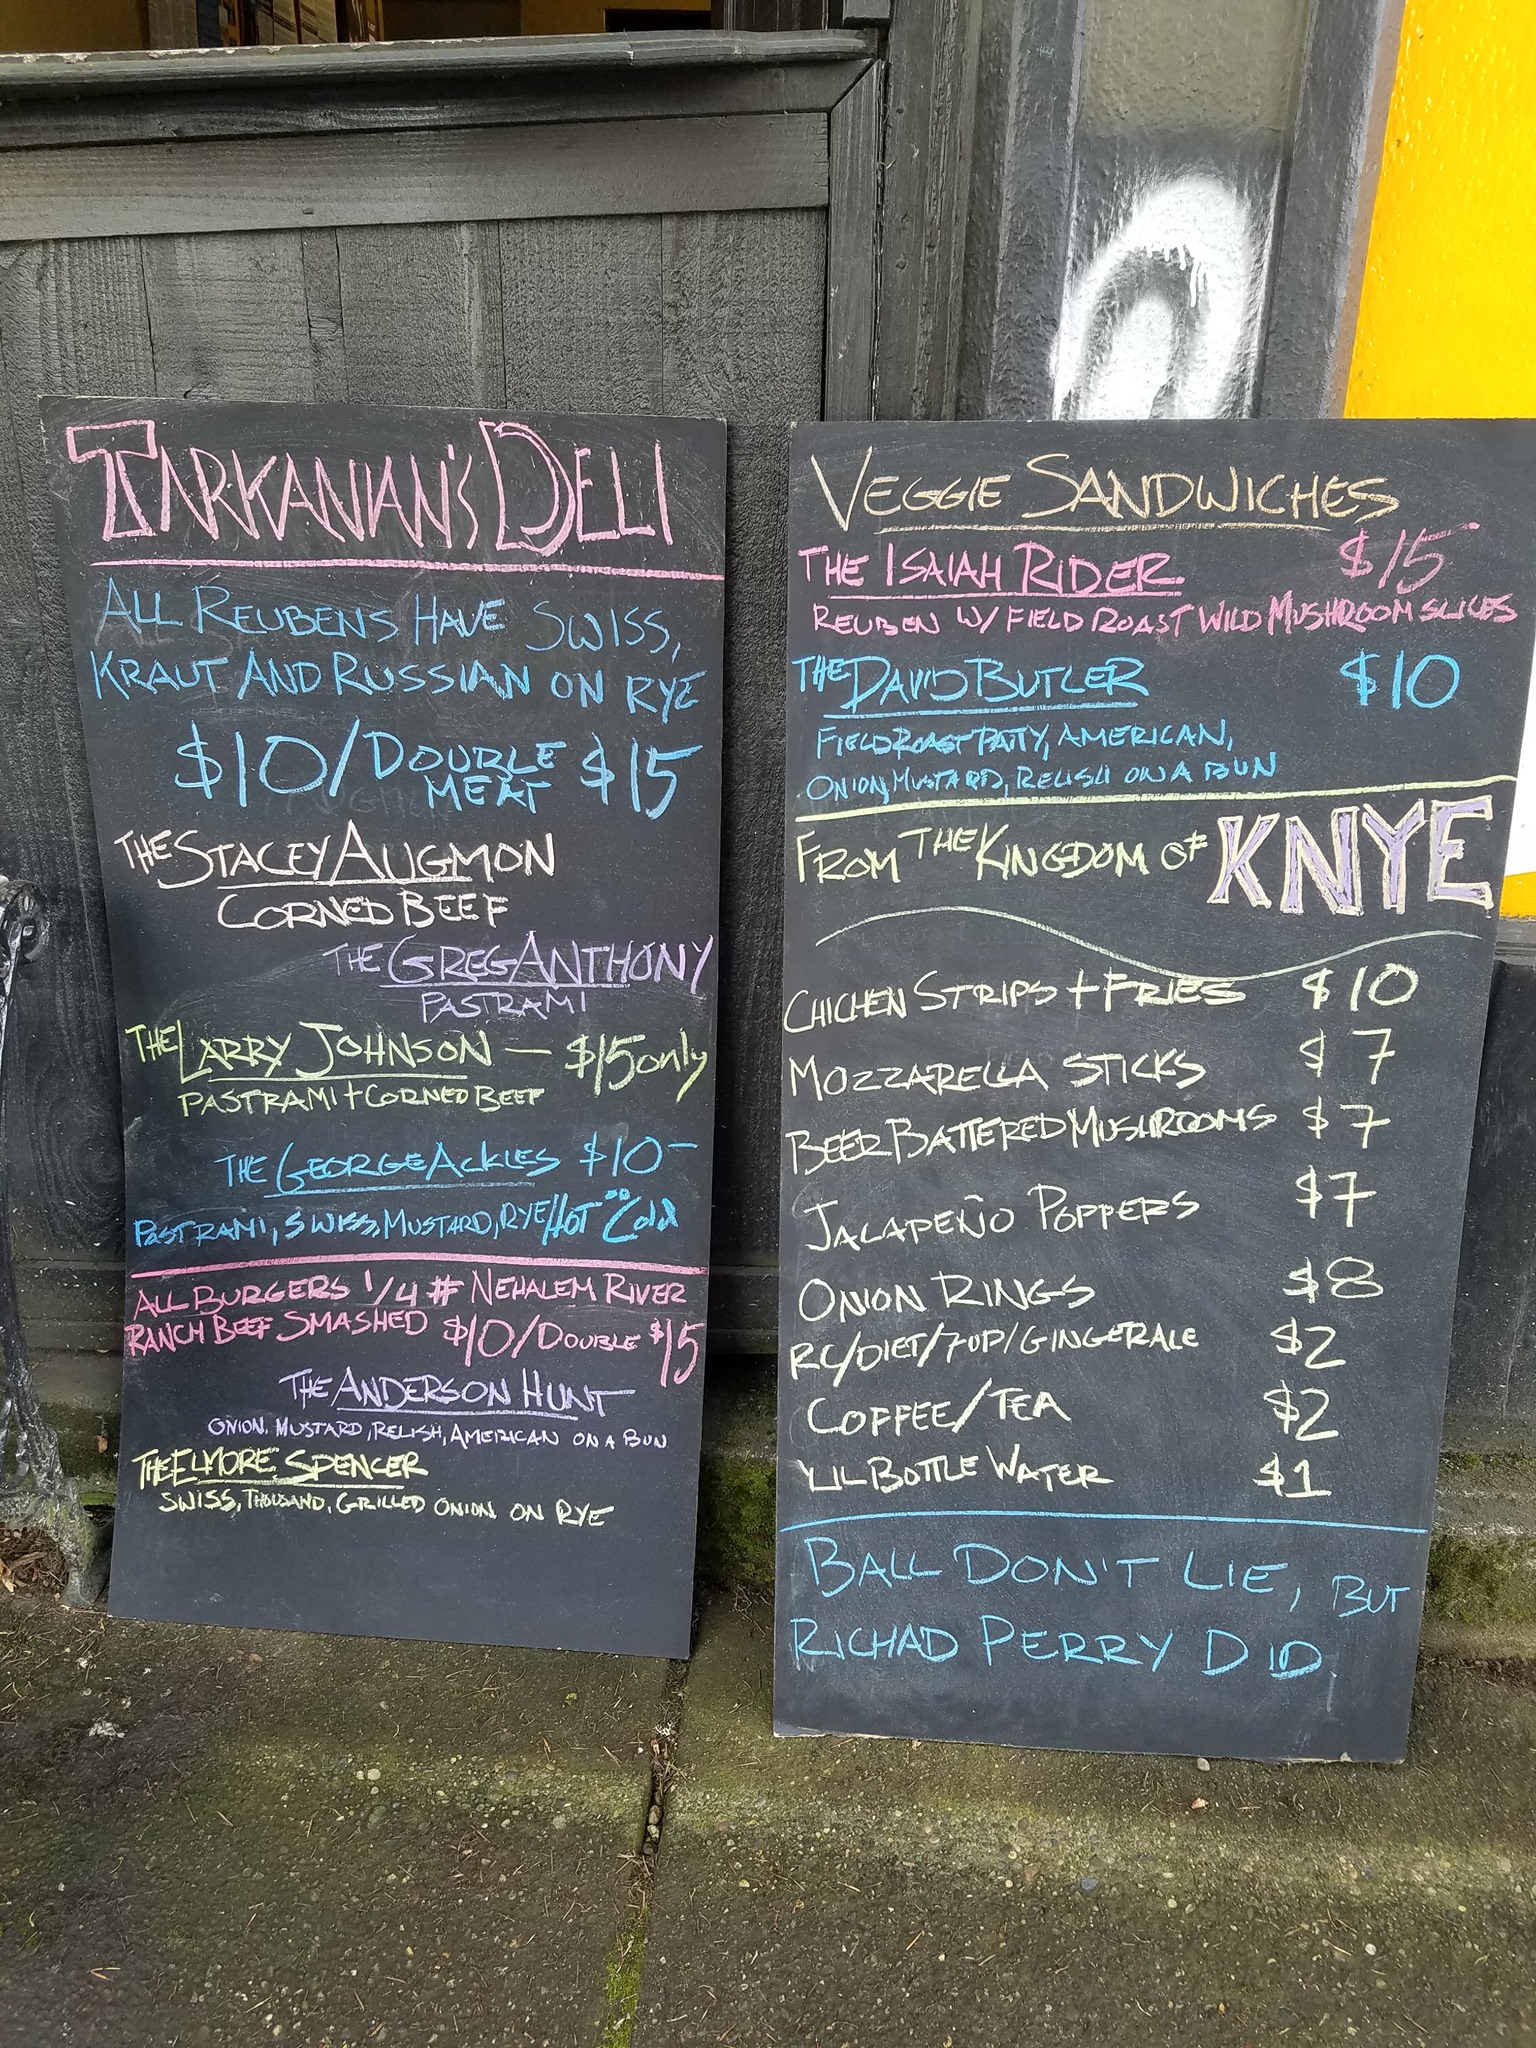 TARKANIAN'S DELI
ALL REUBENS HAVE SWISS,
KRAUT AND RUSSIAN ON RYE
$10/DOUBLE MEAT $15
THE STACEY AUGMON
CORNED BEEF
THE GREG ANTHONY
PASTRAMI
THE LARRY JOHNSON — $15 only
PASTRAMI + CORNED BEEF
THE GEORGE ACKLES $10—
PASTRAMI, SWISS, MUSTARD, RYE HOT OR Cold
ALL BURGERS 1/4 # NEHALEM RIVER
RANCH BEEF SMASHED $10/DOUBLE $15
THE ANDERSON HUNT
ONION, MUSTARD, RELISH, AMERICAN ON A BUN
THE ELMORE SPENCER
SWISS, THOUSAND, GRILLED ONION ON RYE
VEGGIE SANDWICHES
THE ISAIAH RIDER $15
REUBEN W/ FIELD ROAST WILD MUSHROOM SLICES
THE DAVID BUTLER $10
FIELD ROAST PATTY, AMERICAN,
ONION, MUSTARD, RELISH ON A BUN
FROM THE KINGDOM OF KNYE
CHICKEN STRIPS + FRIES $10
MOZZARELLA STICKS $7
BEER BATTERED MUSHROOMS $7
JALAPEÑO POPPERS $7
ONION RINGS $8
RC/DIET/7UP/GINGERALE $2
COFFEE/TEA $2
'LIL BOTTLE WATER $1
BALL DON'T LIE, BUT
RICHAD PERRY DID